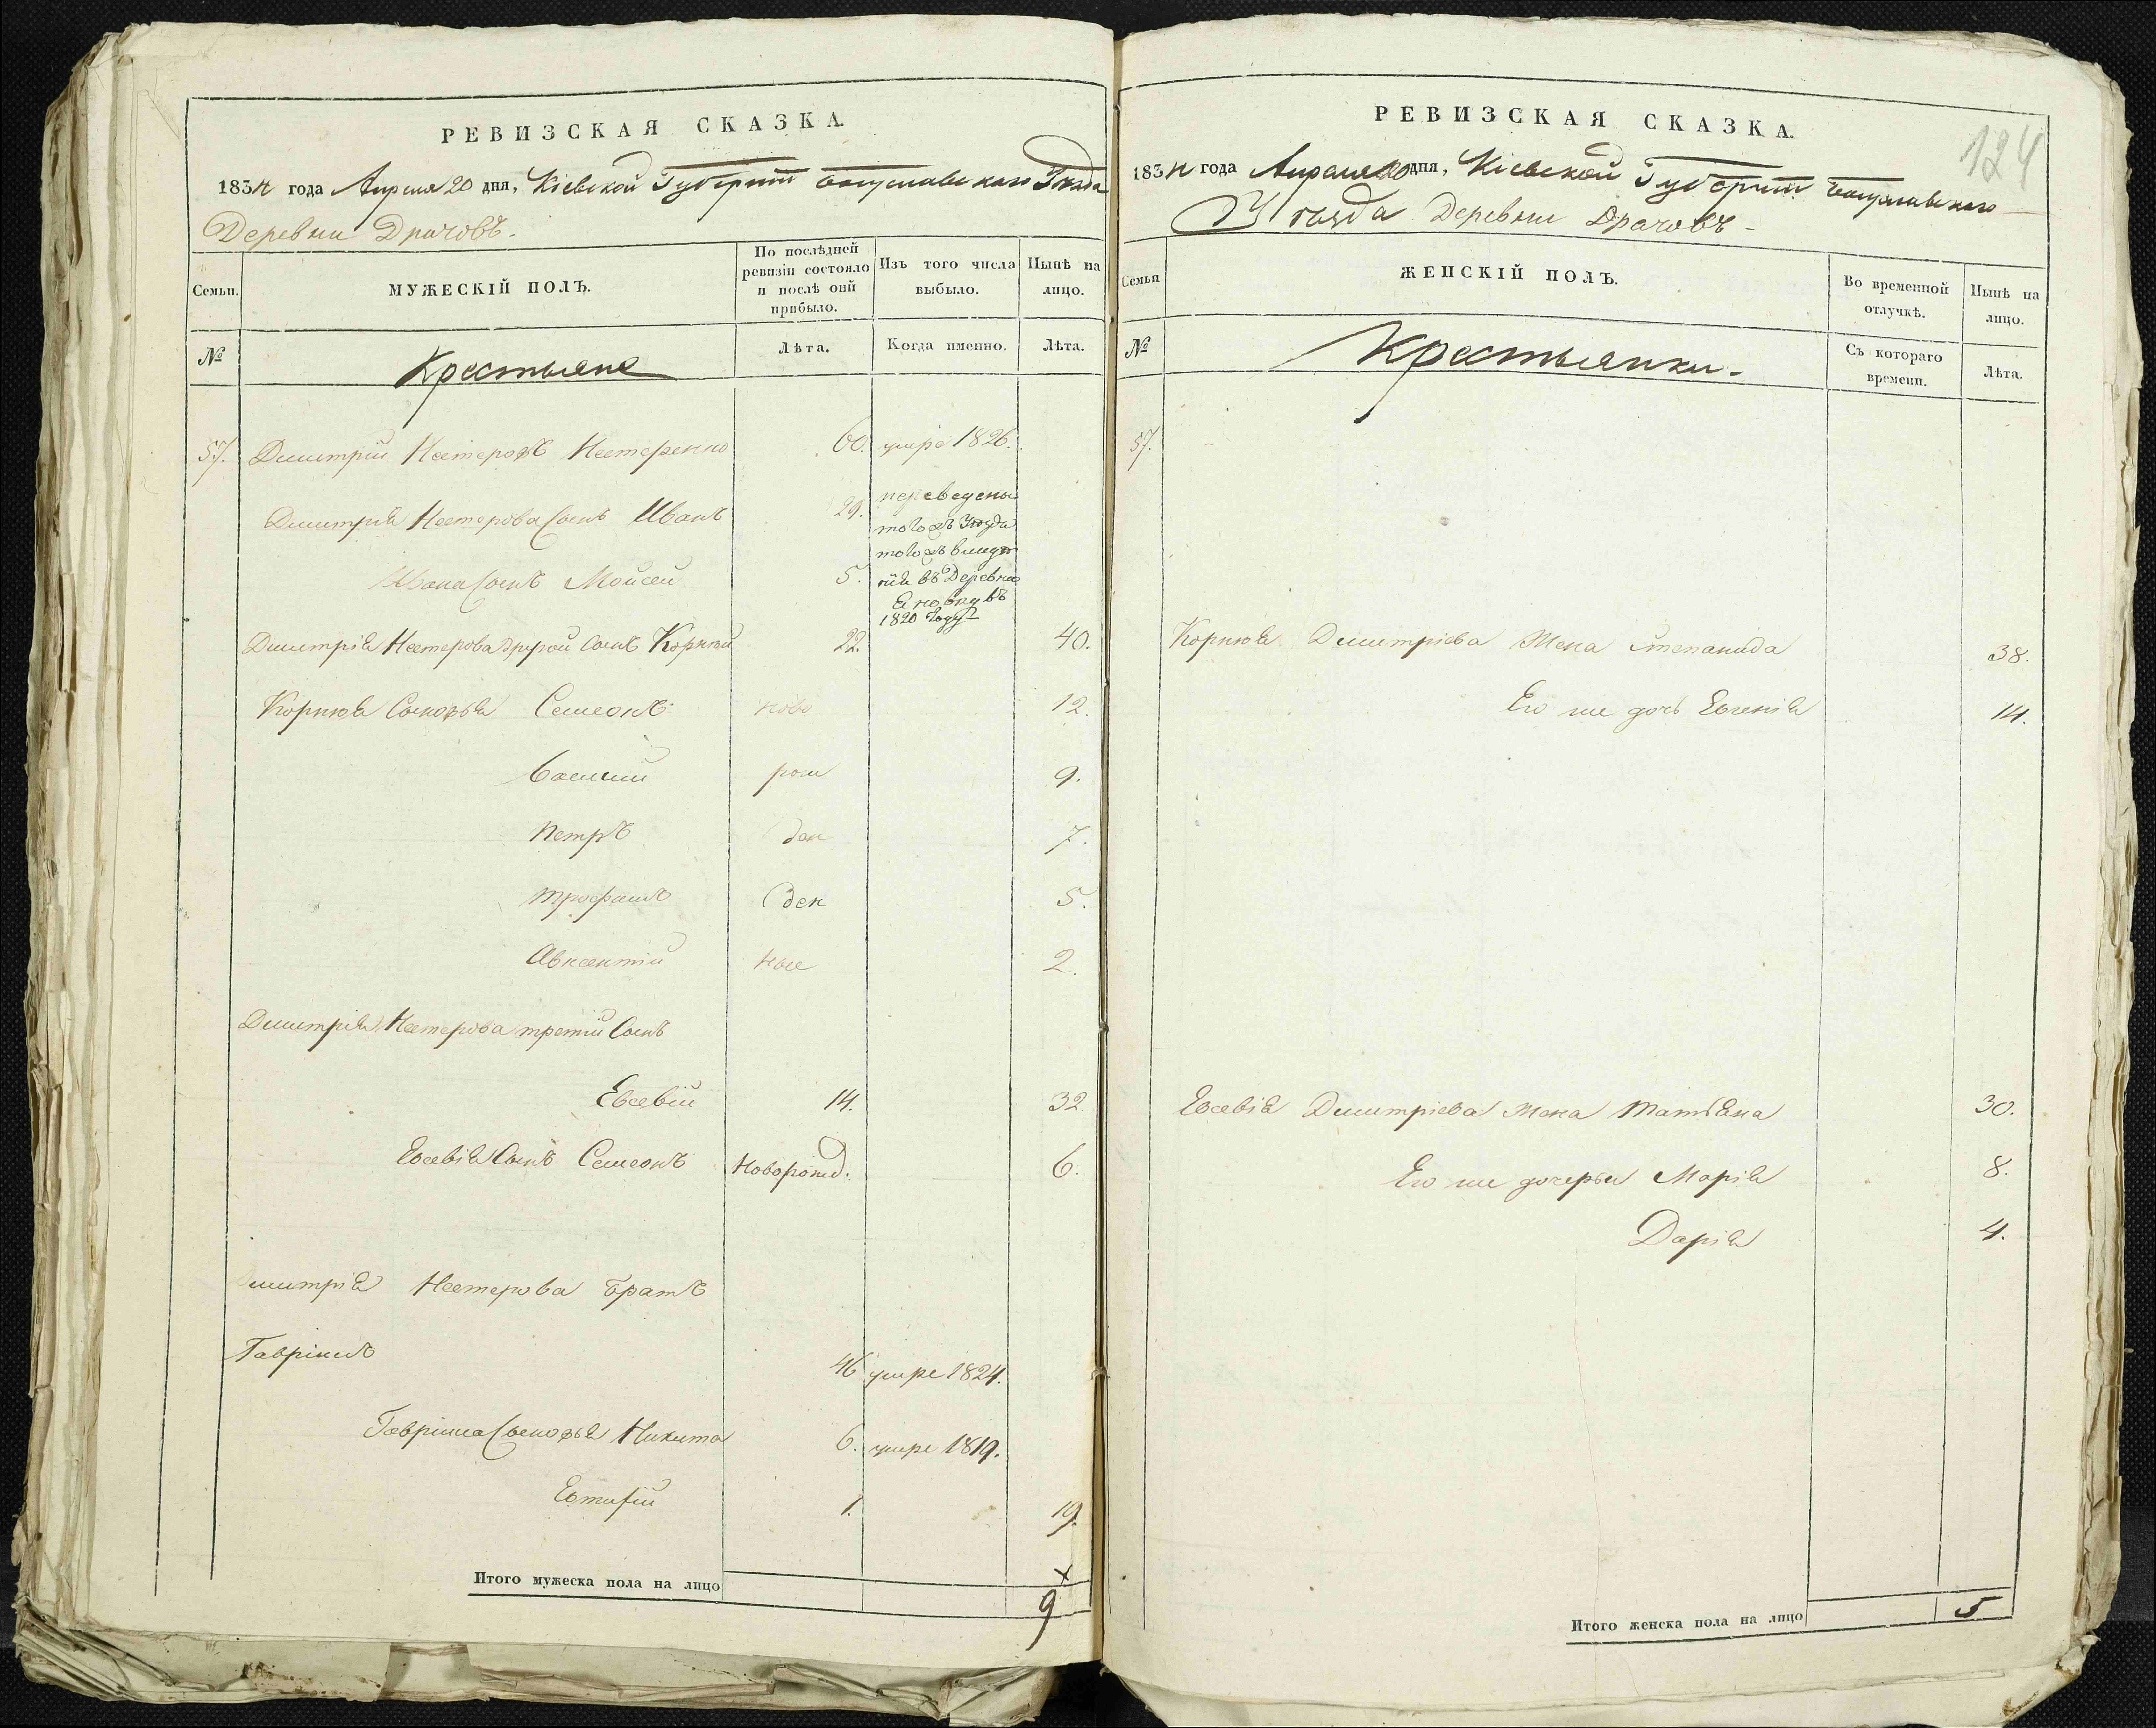 РЕВИЗСКАЯ СКАЗКА.
1834 года Апреля 20 дня, Кіевской Губерніи Богуславскаго Уезда
Деревни Драчовъ.
Семьи.
МУЖЕСКІЙ ПОЛЪ.
По послѣдней ревизіи состояло и послѣ онй прибыло.
Изъ того числа выбыло.
Нынѣ на лицо.
№
Крестьяне
Лѣта.
Когда именно.
Лѣта.
57. Димитрій Нестеровъ Нестеренко 60. умре 1826.
Димитрія Нестерова Сынъ Иванъ 29. переведены
тогожъ Уезда
тогожъ
Ивана Сынъ Мойсей 5. въ Деревню
въ
1820 Году
Димитрія Нестерова другой Сынъ Корнѣй 22. 40.
Корнѣя Сыновья Семеонъ ново 12.
Василій рож 9.
Петръ ден 7.
Трофимъ ден 5.
Авксентій ные 2.
Димитрія Нестерова третій Сынъ
Евсевій 14. 32.
Евсевія Сынъ Семеонъ Новорожд. 6.
Димитрія Нестерова Братъ
Гавріилъ 46 умре 1824.
Гавріила Сыновья Никита 6. умре 1819.
Евтифій 1. 19.
Итого мужеска пола на лицо
х
9
124
РЕВИЗСКАЯ СКАЗКА.
1834 года Апреля 20 дня, Кіевской Губерніи Богуславскаго
Уезда Деревни Драчовъ
Семьи
ЖЕНСКІЙ ПОЛЪ.
Во временной отлучкѣ.
Нынѣ на лицо.
№
Крестьянки.
Съ котораго времени.
Лѣта.
57.
Корнѣя Димитріева Жена Степанида 38.
Его же дочь Евгенія 14.
Евсевія Димитріева Жена Татіяна 30.
Его же дочерьи Марія 8.
Дарія 4.
Итого женска пола на лицо 5